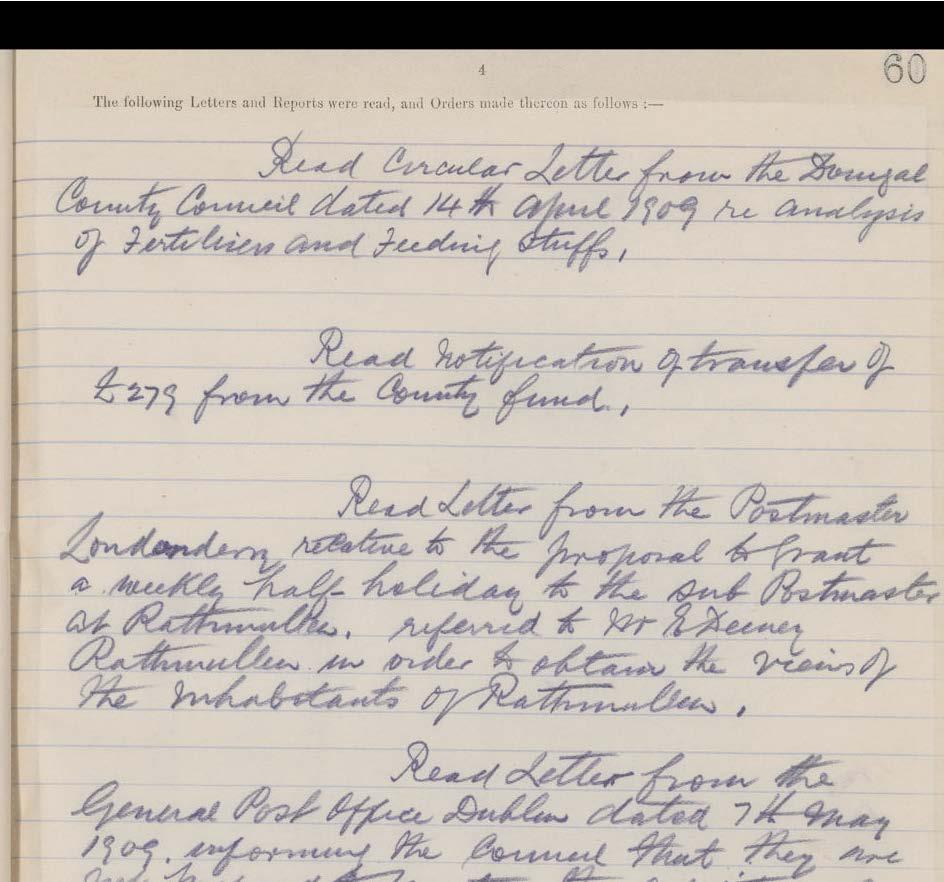 4
60
The following Letters and Reports were read, and Orders made thereon as follows :—
Read Circular Letter from the Donegal
County Council dated 14th April 1909 re analysis
of Fertilisers and Feeding Stuffs,
Read Notification of transfer of
£279 from the County fund.,
Read Letter from the Postmaster
Londonderry relative to the proposal to Grant
a weekly half-holiday to the sub Postmaster
at Rathmullen. referred to Mr E Deeney
Rathmullen in order to obtain the views of
the Inhabitants of Rathmullen.
Read Letter from the
General Post Office Dublin dated 7th May
1909. informing the Council that they are